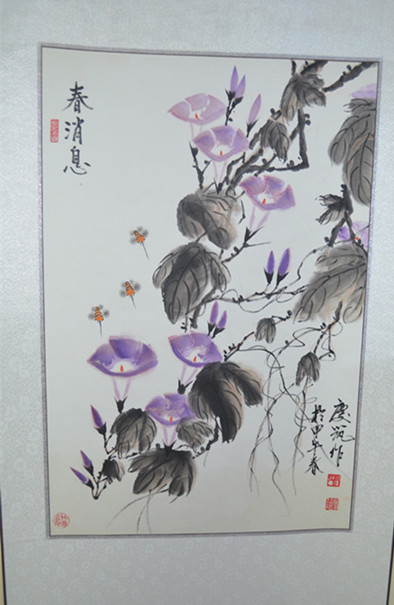 春消息
於甲午春
慶筑作